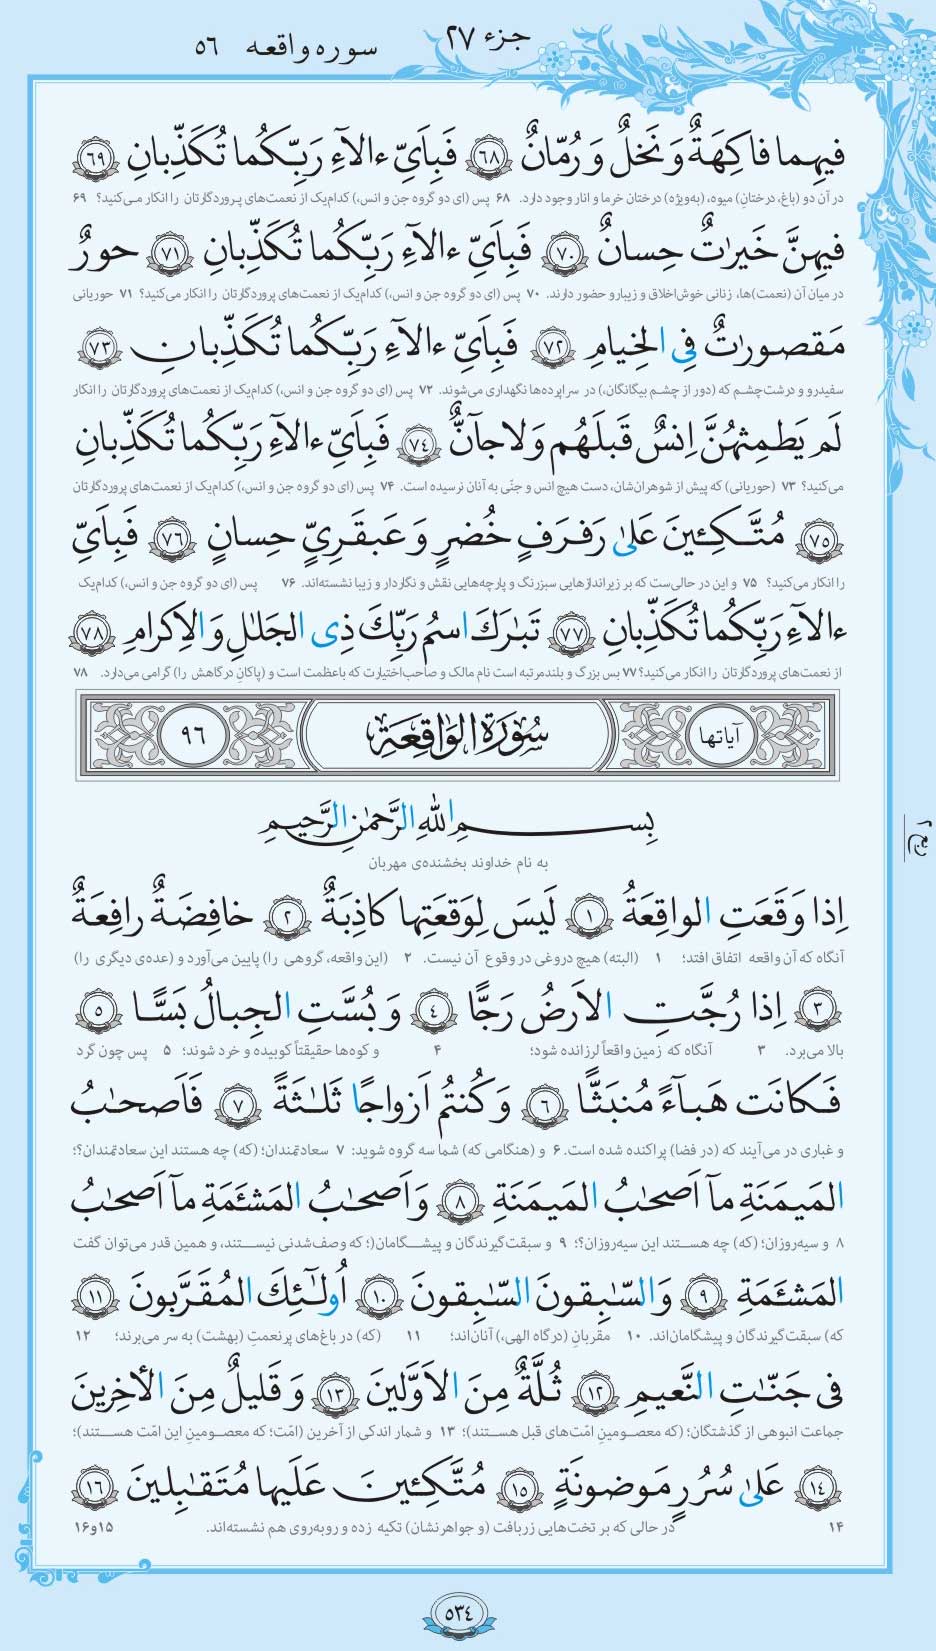 جزء ۲۷ سوره واقعه ۵۶
فیهِما فاکِهَةٌ وَ نَخلٌ وَ رُمّانٌ ۶۸ فَبِاَیِّ ءالآءِ رَبِّکُما تُکَذِّبانِ ۶۹
در آن دو (باغ، درختانِ) میوه، (به‌ویژه) درختان خرما و انار وجود دارد. ۶۸ پس (ای دو گروه جن و انس،) کدام‌یک از نعمت‌های پروردگارتان را انکار می‌کنید؟ ۶۹
فیهِنَّ خَیرٰتٌ حِسانٌ ۷۰ فَبِاَیِّ ءالآءِ رَبِّکُما تُکَذِّبانِ ۷۱ حورٌ
در میان آن (نعمت)ها، زنانی خوش‌اخلاق و زیبارو حضور دارند. ۷۰ پس (ای دو گروه جن و انس،) کدام‌یک از نعمت‌های پروردگارتان را انکار می‌کنید؟ ۷۱ حوریانی
مَقصورٰتٌ فِی الخِیامِ ۷۲ فَبِاَیِّ ءالآءِ رَبِّکُما تُکَذِّبانِ ۷۳
سفیدرو و درشت‌چشم که (دور از چشم بیگانگان،) در سراپرده‌ها نگهداری می‌شوند. ۷۲ پس (ای دو گروه جن و انس،) کدام‌یک از نعمت‌های پروردگارتان را انکار
لَم یَطمِثهُنَّ اِنسٌ قَبلَهُم وَ لا جآنٌّ ۷۴ فَبِاَیِّ ءالآءِ رَبِّکُما تُکَذِّبانِ
می‌کنید؟ ۷۳ (حوریانی) که پیش از شوهران‌شان، دست هیچ انس و جنّی به آنان نرسیده است. ۷۴ پس (ای دو گروه جن و انس،) کدام‌یک از نعمت‌های پروردگارتان
۷۵ مُتَّکِـٔینَ عَلیٰ رَفرَفٍ خُضرٍ وَ عَبقَرِیٍّ حِسانٍ ۷۶ فَبِاَیِّ
را انکار می‌کنید؟ ۷۵ و این در حالی‌ست که بر زیراندازهایی سبزرنگ و پارچه‌هایی نقش و نگاردار و زیبا نشسته‌اند. ۷۶ پس (ای دو گروه جن و انس،) کدام‌یک
ءالآءِ رَبِّکُما تُکَذِّبانِ ۷۷ تَبٰرَکَ اسمُ رَبِّکَ ذِی الجَلٰلِ وَ الاِکرامِ ۷۸
از نعمت‌های پروردگارتان را انکار می‌کنید؟ ۷۷ بس بزرگ و بلندمرتبه است نام مالک و صاحب‌اختیارت که باعظمت است و (پاکانِ درگاهش را) گرامی می‌دارد. ۷۸
آیاتها سُورَةُ الوَاقِعَةِ ۹۶
ربع ۲
بِسمِ اللّٰهِ الرَّحمٰنِ الرَّحیمِ
به نام خداوند بخشنده‌ی مهربان
اِذا وَقَعَتِ الواقِعَةُ ۱ لَیسَ لِوَقعَتِها کاذِبَةٌ ۲ خافِضَةٌ رافِعَةٌ
آنگاه که آن واقعه اتفاق افتد؛ ۱ (البته) هیچ دروغی در وقوع آن نیست. ۲ (این واقعه، گروهی را) پایین می‌آورد و (عده‌ی دیگری را)
۳ اِذا رُجَّتِ الاَرضُ رَجًّا ۴ وَ بُسَّتِ الجِبالُ بَسًّا ۵
بالا می‌برد. ۳ آنگاه که زمین واقعاً لرزانده شود؛ ۴ و کوه‌ها حقیقتاً کوبیده و خرد شوند؛ ۵ پس چون گرد
فَکانَت هَبآءً مُنبَثًّا ۶ وَ کُنتُم اَزواجًا ثَلٰثَةً ۷ فَاَصحٰبُ
و غباری در می‌آیند که (در فضا) پراکنده شده است. ۶ و (هنگامی که) شما سه گروه شوید: ۷ سعادتمندان؛ (که) چه هستند این سعادتمندان؟؛
المَیمَنَةِ مآ اَصحٰبُ المَیمَنَةِ ۸ وَ اَصحٰبُ المَشئَمَةِ مآ اَصحٰبُ
۸ و سیه‌روزان؛ (که) چه هستند این سیه‌روزان؟؛ ۹ و سبقت‌گیرندگان و پیشگامان(؛ که وصف‌شدنی نیستند، و همین قدر می‌توان گفت
المَشئَمَةِ ۹ وَ السّٰبِقونَ السّٰبِقونَ ۱۰ اُولٰٓئِکَ المُقَرَّبونَ ۱۱
که) سبقت‌گیرندگان و پیشگامان‌اند. ۱۰ مقربانِ (درگاه الهی،) آنان‌اند؛ ۱۱ (که) در باغ‌های پرنعمتِ (بهشت) به سر می‌برند؛ ۱۲
فی جَنّٰتِ النَّعیمِ ۱۲ ثُلَّةٌ مِنَ الاَوَّلینَ ۱۳ وَ قَلیلٌ مِنَ الأخِرینَ
جماعت انبوهی از گذشتگان؛ (که معصومینِ امّت‌های قبل هستند)؛ ۱۳ و شمار اندکی از آخرین (امّت؛ که معصومینِ این امّت هستند)؛
۱۴ عَلیٰ سُرُرٍ مَوضونَةٍ ۱۵ مُتَّکِـٔینَ عَلَیها مُتَقٰبِلینَ ۱۶
۱۴ در حالی که بر تخت‌هایی زربافت (و جواهرنشان) تکیه زده و روبه‌روی هم نشسته‌اند. ۱۵و۱۶
۵۳۴